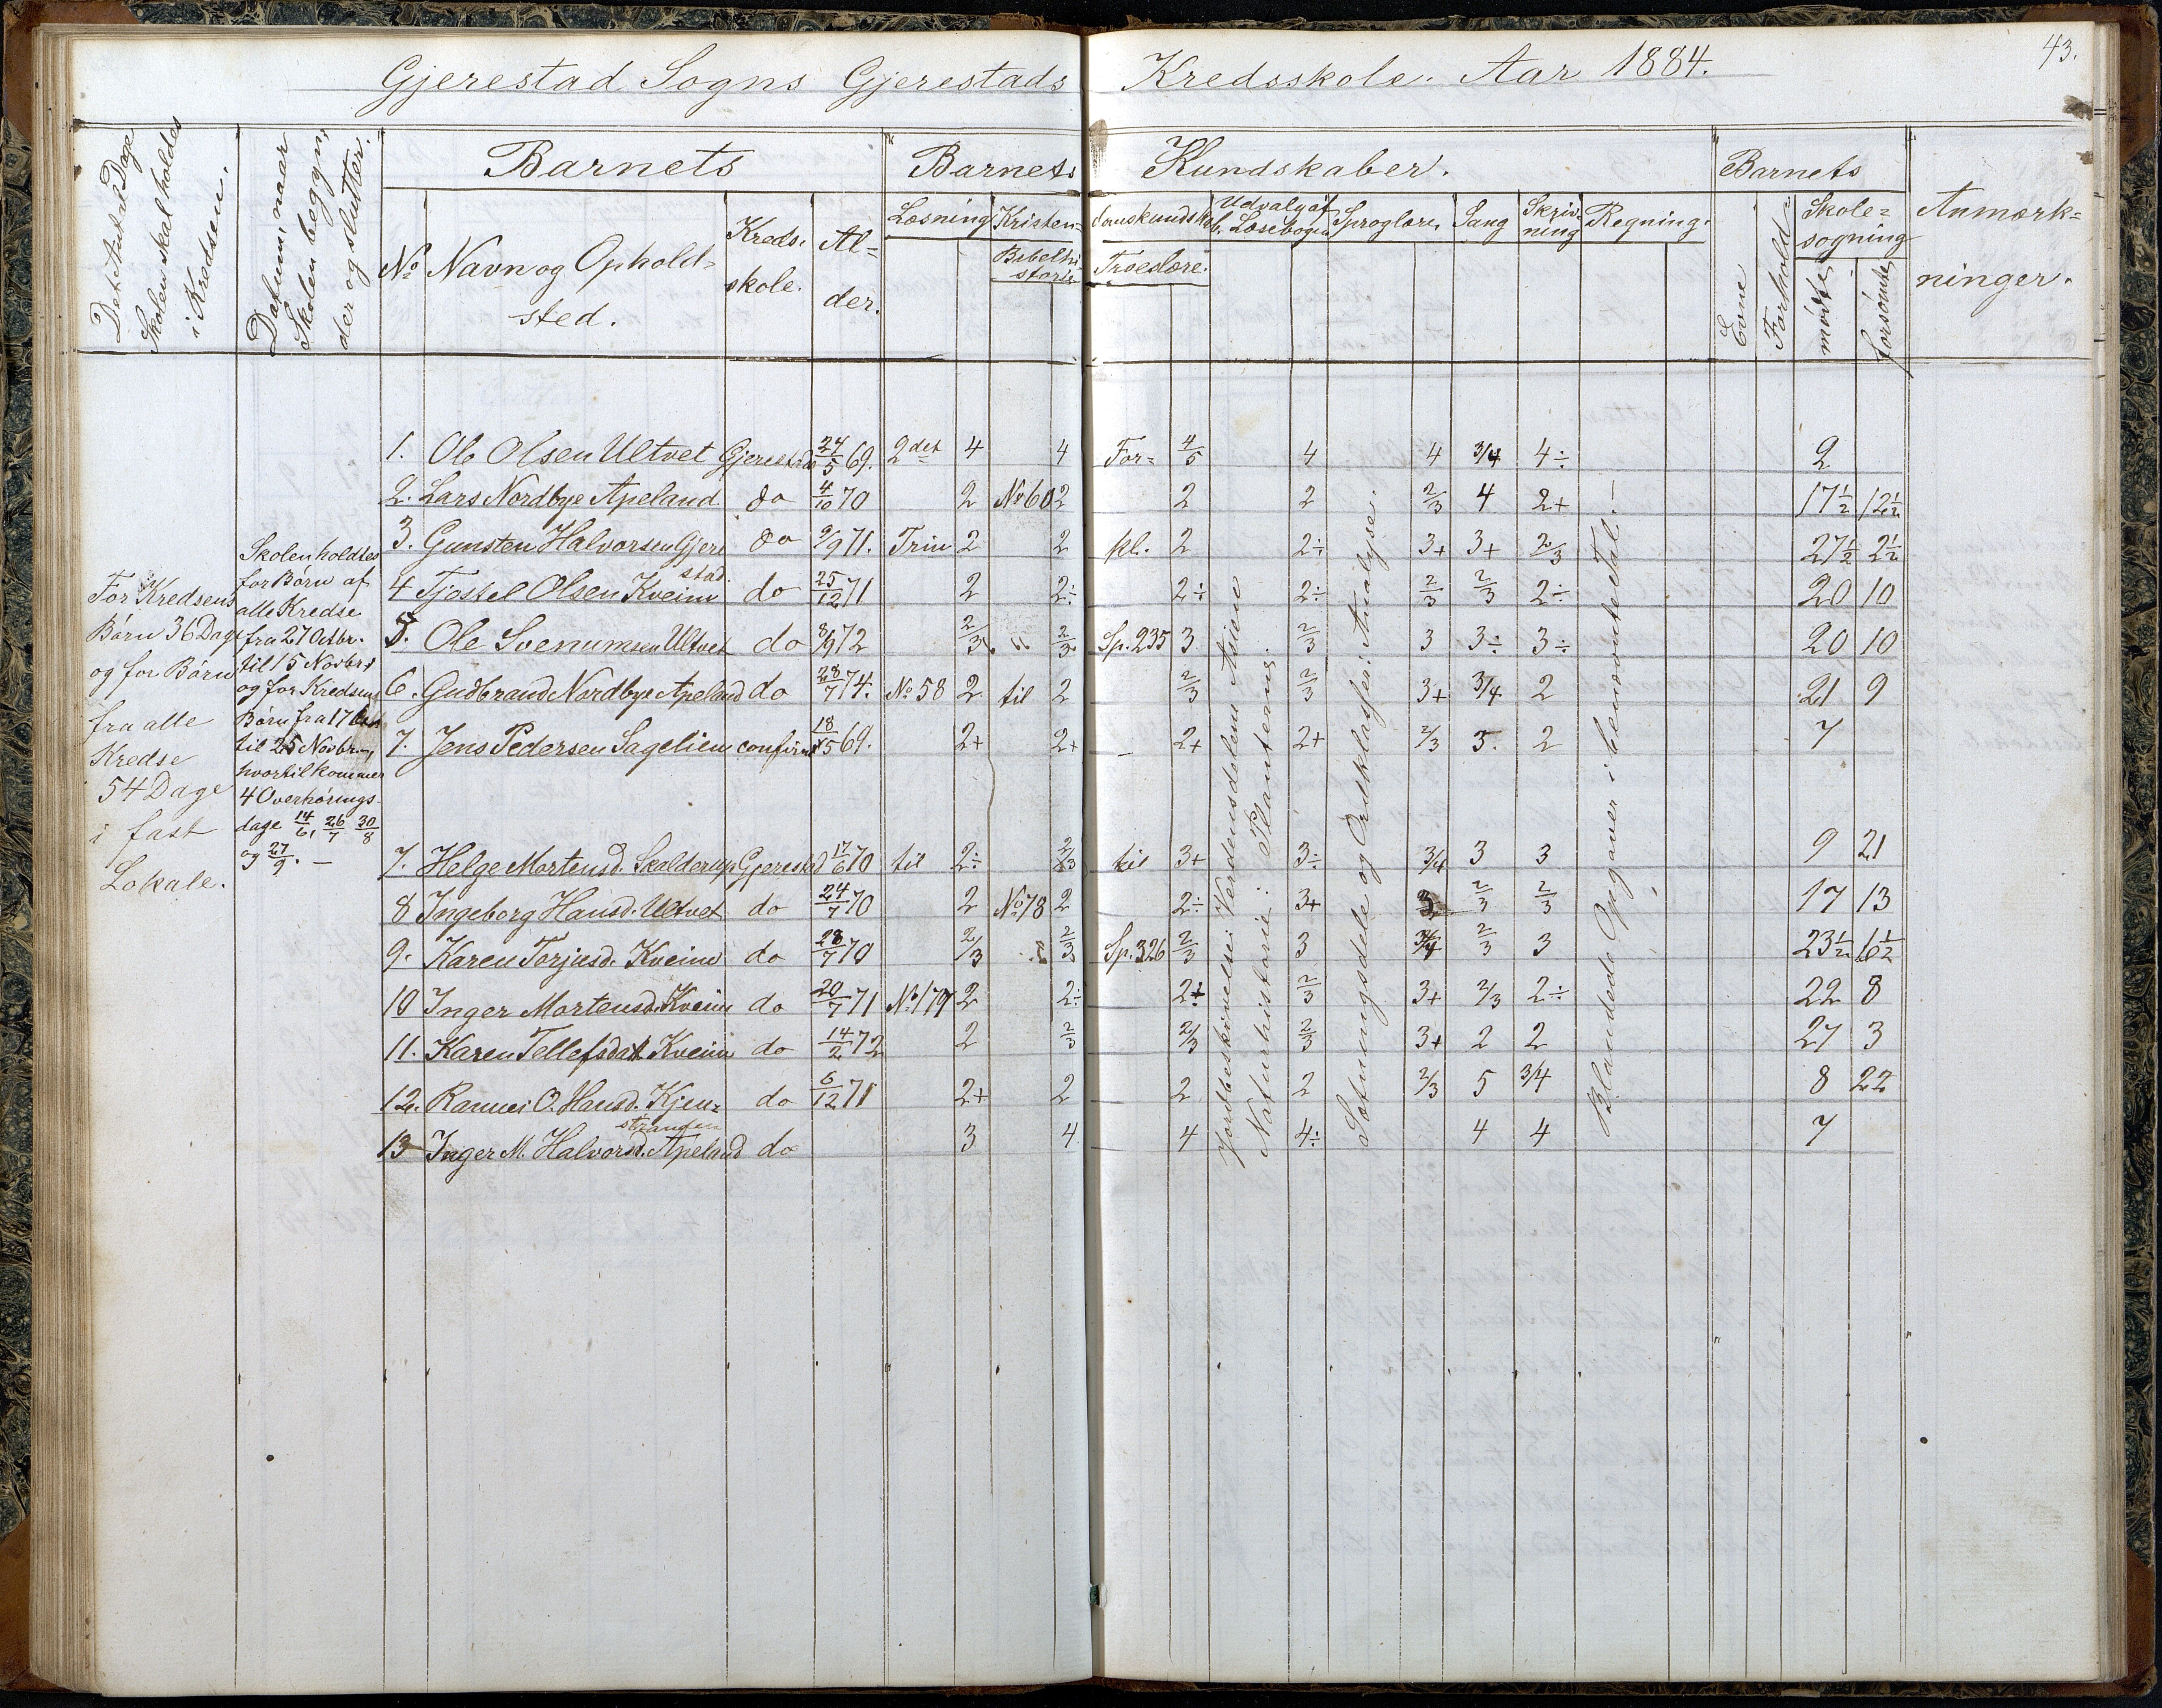 Gjerestad Sogns Gjerestads Kredsskole. Aar 1884.
43.
Det Antal Dage
Skolen skal holdes
i Kredsen.
Datum, naar
Skolen begyn-
der og slutter.
Barnets
No
Navn og Ophold-
sted.
Kreds-
skole.
Al-
der.
Barnets Kundskaber.
Læsning
Kristendomskundskab.
Bibelhi-
storie
Troeslære.
Udvalg af
Læsebogen
Sproglære
Sang
Skriv-
ning
Regning.
Barnets
Evne
Forhold
Skole-
søgning
mødte
forsømte
Anmærk-
ninger.
For Kredsens
Børn 36 Dage
og for Børn
fra alle
Kredse
54 Dage
i fast
Lokale.
Skolen holdtes
for Børn af
alle Kredse
fra 27 Octbr.
til 15 Novbr.
og for Kredsens
Børn fra 17
til 25 Novbr.,
hvortil kommer
4 Overhørings-
dage 14/6, 26/7 30/8
og 27/9. —
1. Ole Olsen Ultvet Gjerestad 24/5 69. 2det 4 4 For- 4/5 4 4 3/4 4÷ 2
2. Lars Nordbye Apeland do 4/10 70 2 No 60 2 2 2 2/3 4 2+ 17½ 12½
3. Gunsten Halvorsen Gjere do 9/9 71. Trin 2 2 kl. 2 2÷ 3+ 3+ 2/3 27½ 2½
stad.
4 Tjostel Olsen Kveim do 25/12 71 2 2÷ 2÷ 2÷ 2/3 2/3 2÷ 20 10
5. Ole Svenumsen Ultvet do 8/9 72 2/3 " 2/3 Sp. 235 3 2/3 3 3÷ 3÷ 20 10
6. Gudbrand Nordbye Apeland do 28/7 74. No 58 2 til 2 2/3 2/3 3+ 3/4 2 21 9
7. Jens Pedersen Sagelien confirm 18/5 69. 2+ 2+ — 2+ 2+ 2/3 5. 2 7
7. Helge Mortensd. Skalderup Gjerestad 17/6 70 til 2÷ 2/3 til 3+ 3÷ 3/4 3 3 9 21
8 Ingeborg Hansd. Ultvet do 24/7 70 2 No 78 2 2÷ 3+ 3 2/3 2/3 17 13
9. Karen Torjusd. Kveim do 28/7 70 2/3 2/3 Sp. 326 2/3 3 3/4 2/3 3 23½ 6½
10 Inger Mortensd. Kveim do 20/7 71 No 179 2 2÷ 2÷ 2/3 3+ 2/3 2÷ 22 8
11. Karen Tellefsdatt. Kveim do 14/2 72 2 2/3 2/3 2/3 3+ 2 2 27 3
12. O. Hansd. Kjen- do 6/12 71 2+ 2 2 2 2/3 5 3/4 8 22
stranden
13 Inger M. Halvorsd. Apeland do 3 4 4 4÷ 4 4 7
Jordbeskrivelse: Verdensdelen Asien.
Naturhistorie: Planterne.
Sætningsdele og Ordklasser: Analyse.
Blandede Opgaver i benævnte Tal. —